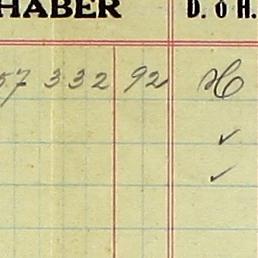 HABER D. ó H.
57 332 92 H
✓
✓